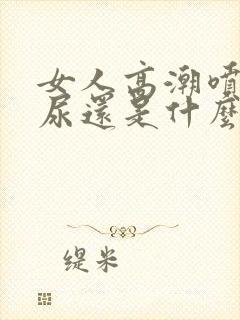 女人高潮噴
尿還是什麼
缇米